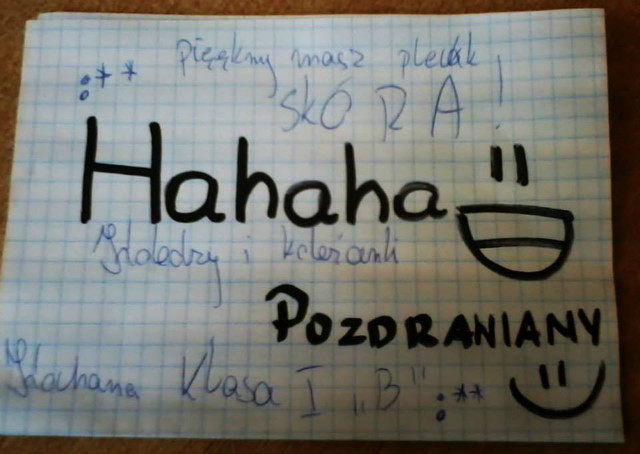 Pięękny masz plecak!
:**
SKÓRA!
Hahaha
i koleżanki
POZDRANIANY
Kochana Klasa I „B” :**